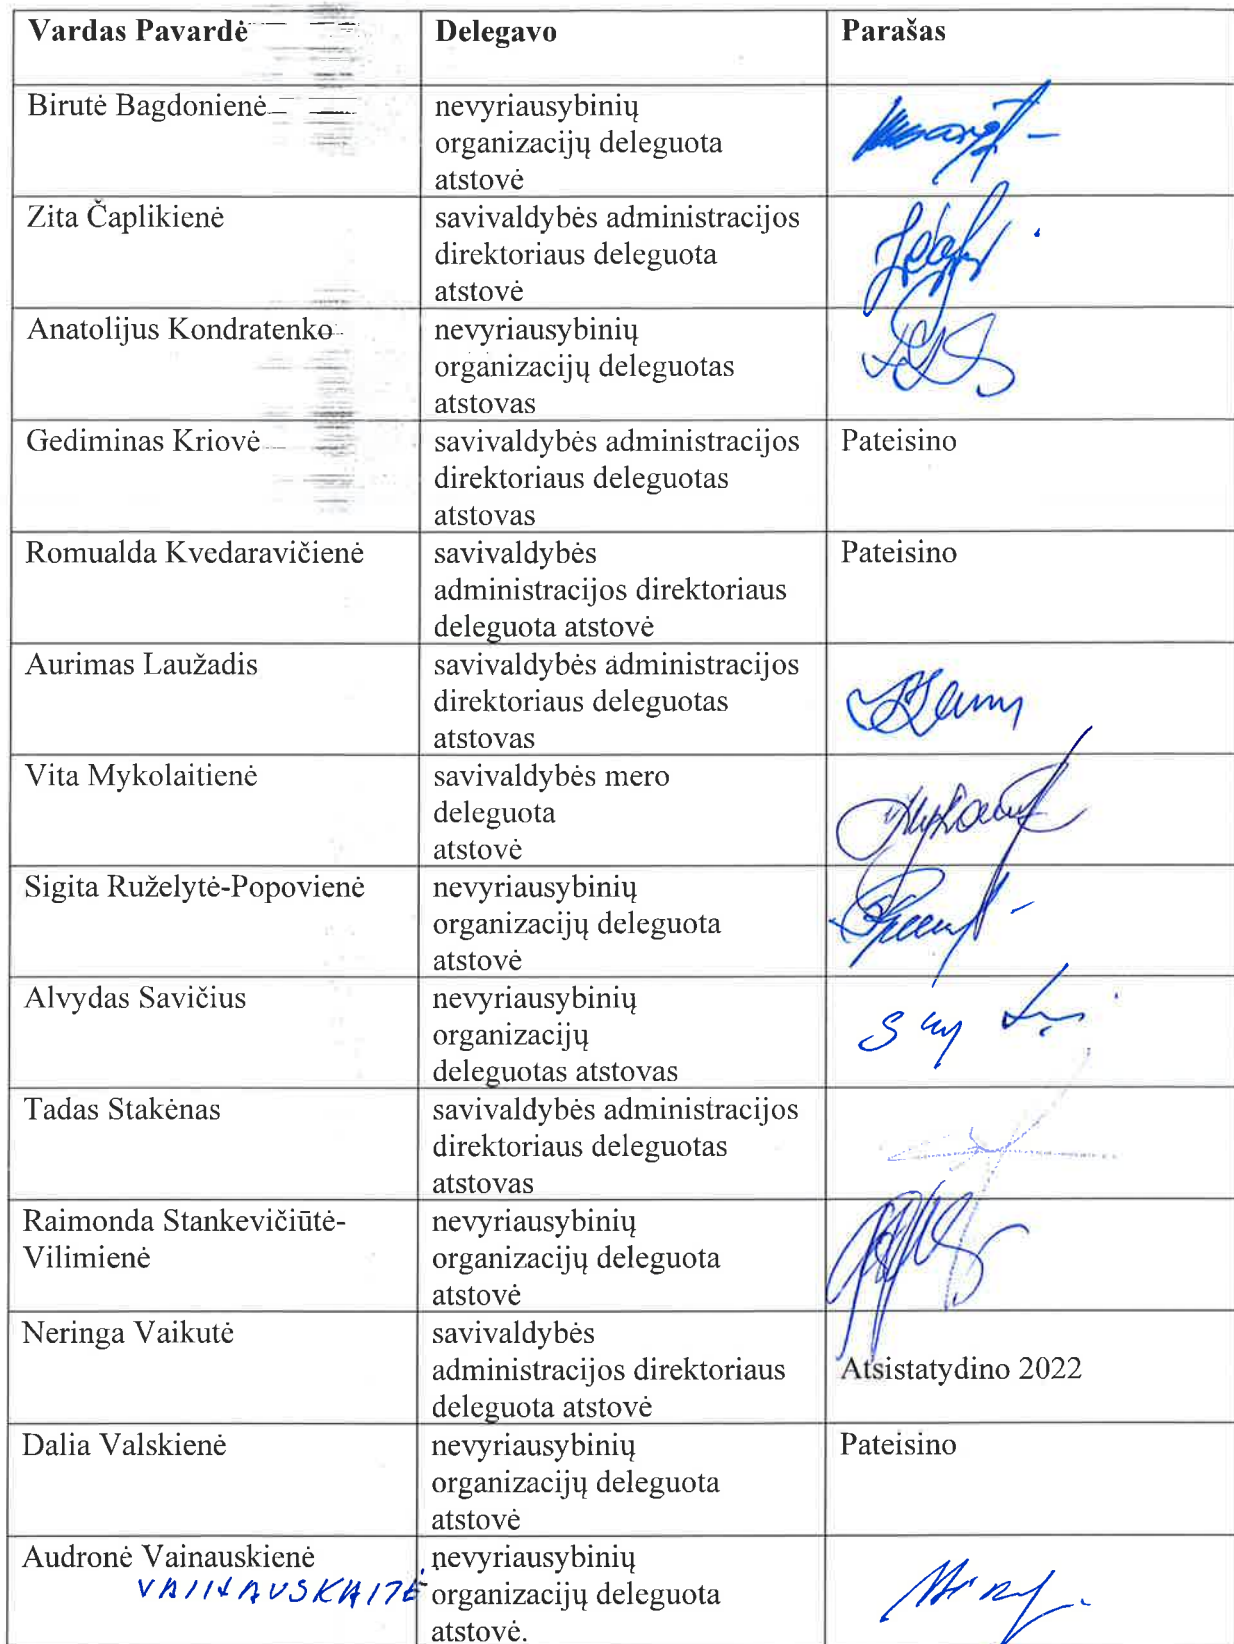 Vardas Pavardė Delegavo Parašas
Birutė Bagdonienė nevyriausybinių
organizacijų deleguota
atstovė
Zita Čaplikienė savivaldybės administracijos
direktoriaus deleguota
atstovė
Anatolijus Kondratenko nevyriausybinių
organizacijų deleguotas
atstovas
Gediminas Kriovė savivaldybės administracijos Pateisino
direktoriaus deleguotas
atstovas
Romualda Kvedaravičienė savivaldybės Pateisino
administracijos direktoriaus
deleguota atstovė
Aurimas Laužadis savivaldybės administracijos
direktoriaus deleguotas
atstovas
Vita Mykolaitienė savivaldybės mero
deleguota
atstovė
Sigita Ruželytė-Popovienė nevyriausybinių
organizacijų deleguota
atstovė
Alvydas Savičius nevyriausybinių
organizacijų
deleguotas atstovas
Tadas Stakėnas savivaldybės administracijos
direktoriaus deleguotas
atstovas
Raimonda Stankevičiūtė- nevyriausybinių
Vilimienė organizacijų deleguota
atstovė
Neringa Vaikutė savivaldybės
administracijos direktoriaus Atsistatydino 2022
deleguota atstovė
Dalia Valskienė nevyriausybinių Pateisino
organizacijų deleguota
atstovė
Audronė Vainauskienė nevyriausybinių
VAINAUSKAITĖ organizacijų deleguota
atstovė.